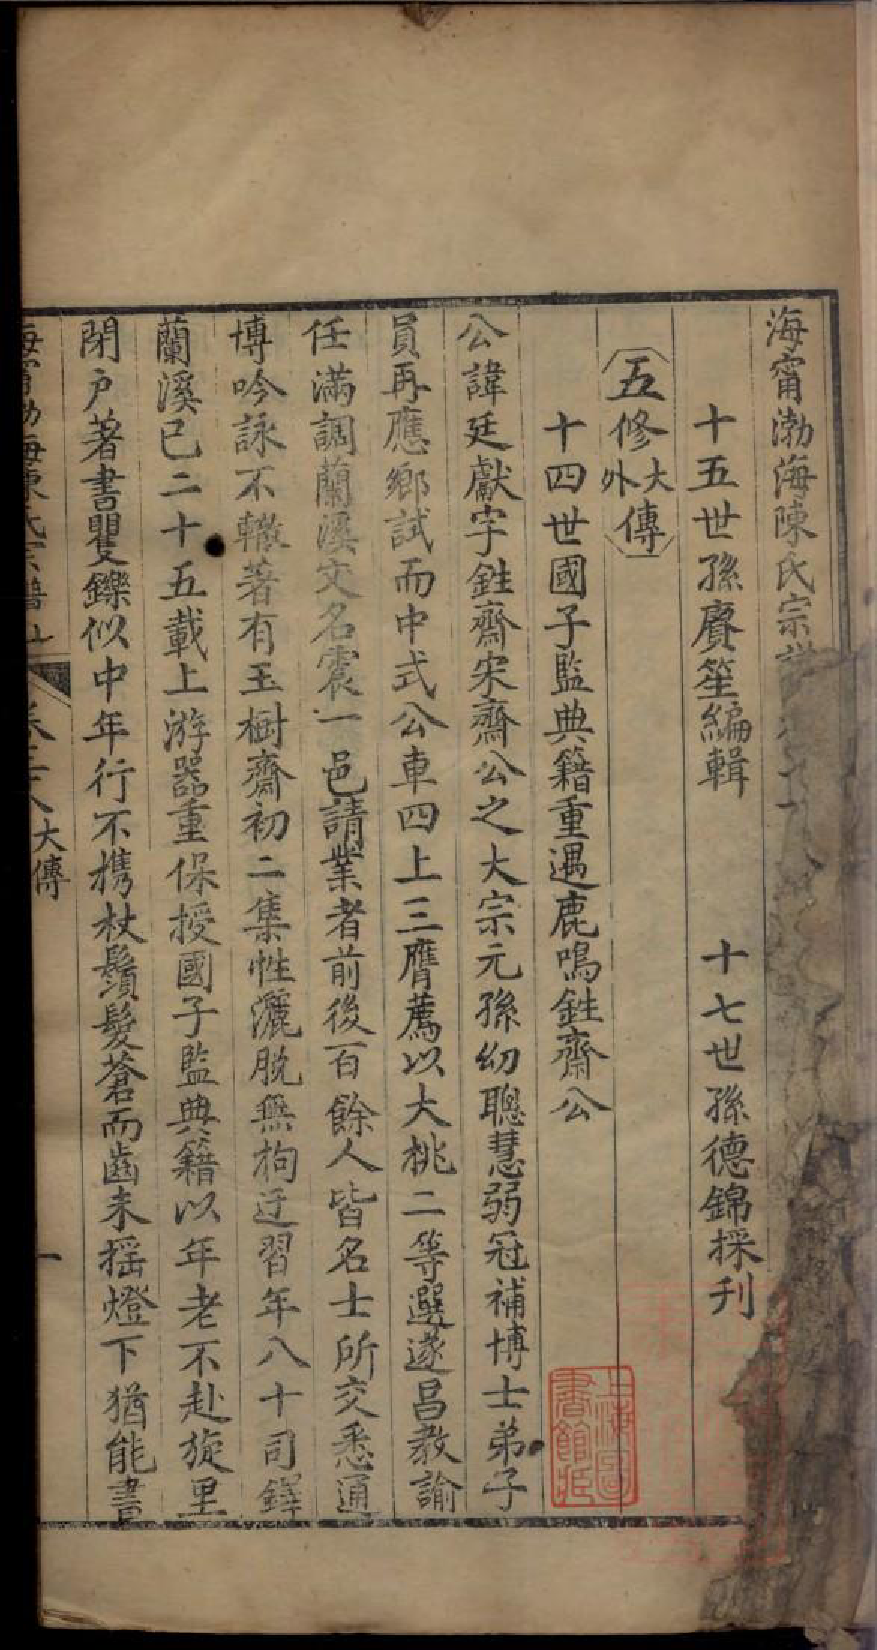 海甯渤海陳氏宗譜
十五世孫賡笙編輯 十七世孫德錦採刋
五修大外傳
十四世國子監典籍重遇鹿鳴甡齋公
公諱廷獻字甡齋宋齋公之大宗元孫幼聰慧弱冠補博士弟子
員再應鄉試而中式公車四上三膺薦以大桃二等選遂昌教諭
任滿調蘭溪文名震一邑請業者前後百餘人皆名士所交悉通
博吟詠不輟著有玉樹齋初二集性灑脫無拘迂習年八十司鐸
蘭溪已二十五載上游器重保授國子監典籍以年老不赴旋里
閉户著書矍鑠似中年行不攜杖鬚髮蒼而齒未搖燈下猶能書
海甯渤海陳氏宗譜 卷二十八大傳 一
上海圖書館藏